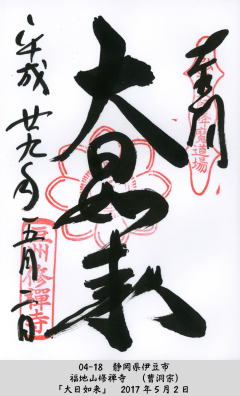 奉拝
大日如来
平成廿九年五月二日
豆州修禅寺
04-18 静岡県伊豆市
福地山修禅寺 (曹洞宗)
「大日如来」 2017年5月2日